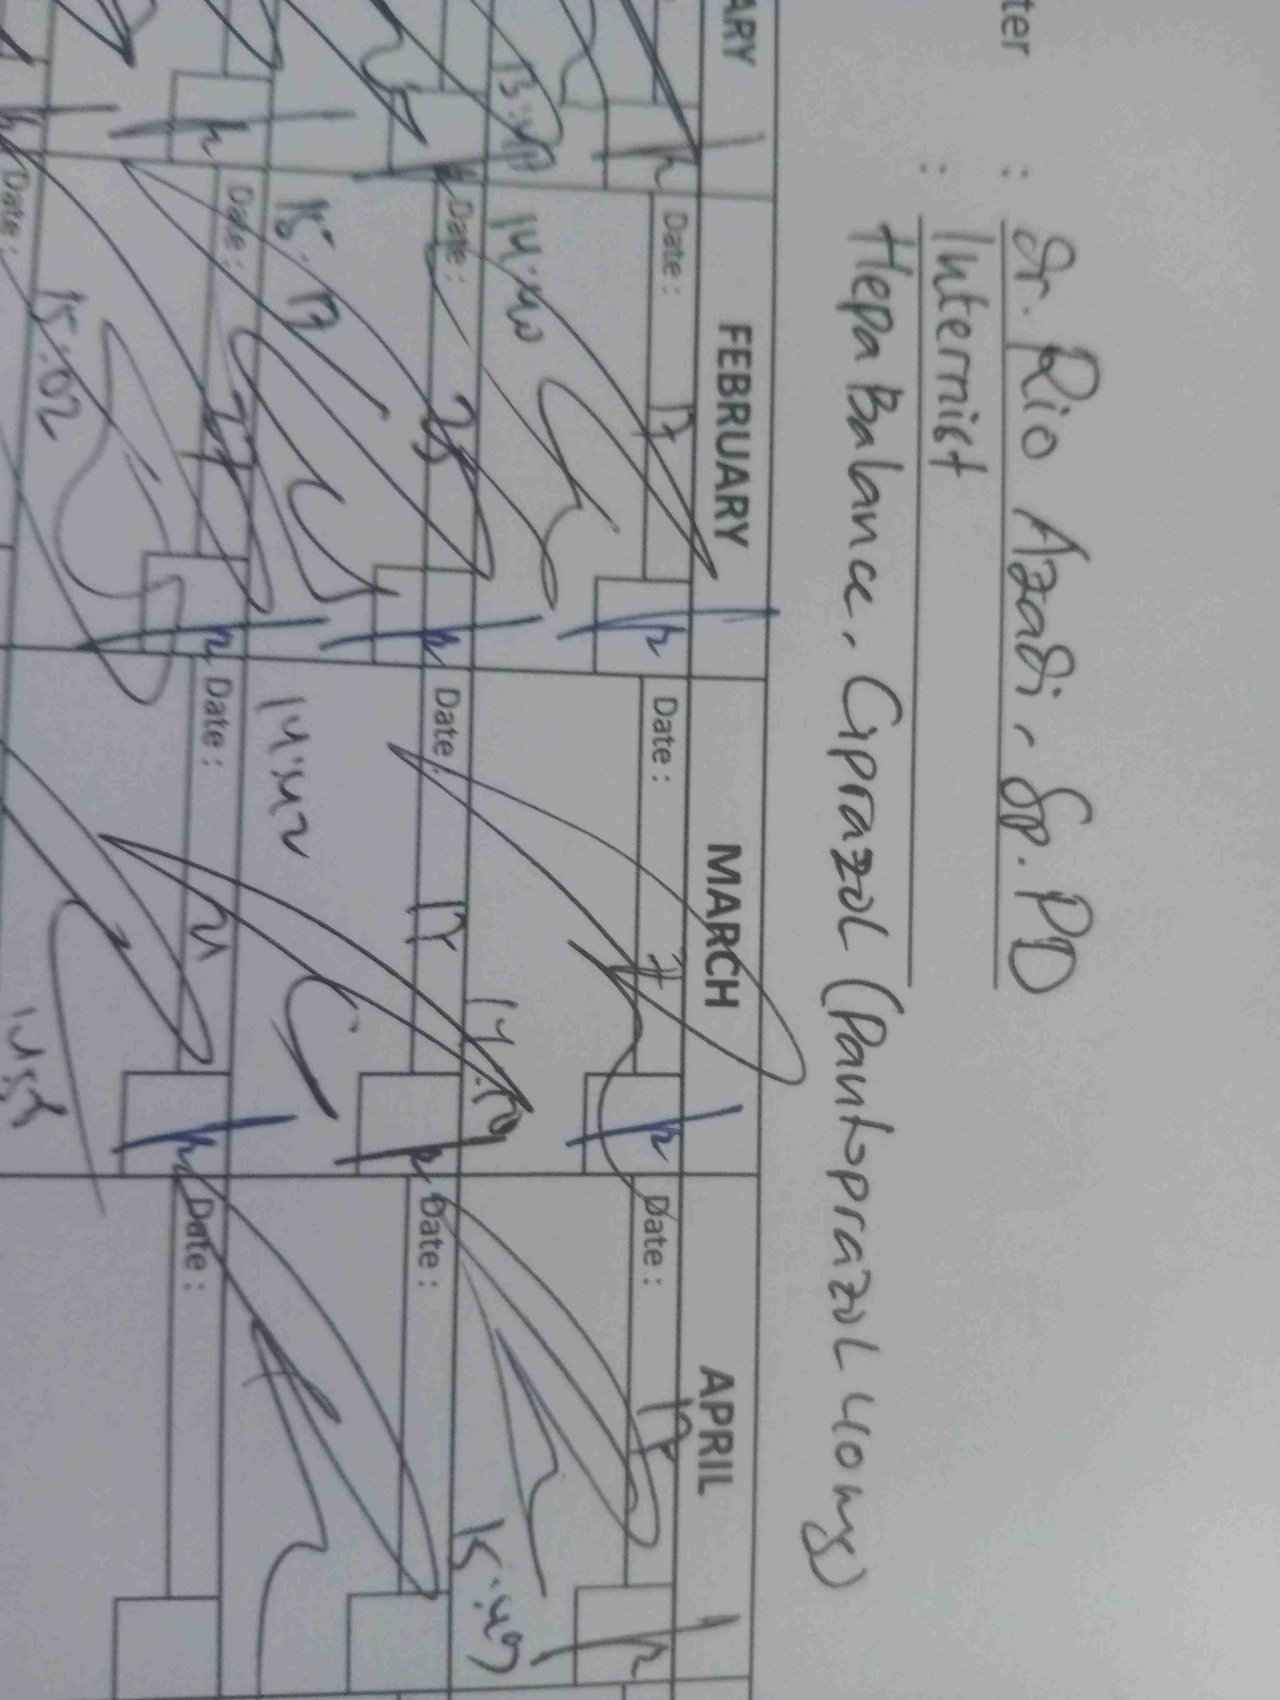 ter : dr. Rio Azadi, Sp. PD
: Internist
Hepa Balance, Ciprazol (Pantoprazol 40 mg)
ARY FEBRUARY MARCH APRIL
Date : 17 Date : 7 Date : 17
14.40 15:49
Date : 25 Date : 17 Date :
15.17 14.42
Date : 27 Date : 21 Date :
15:02
Date :